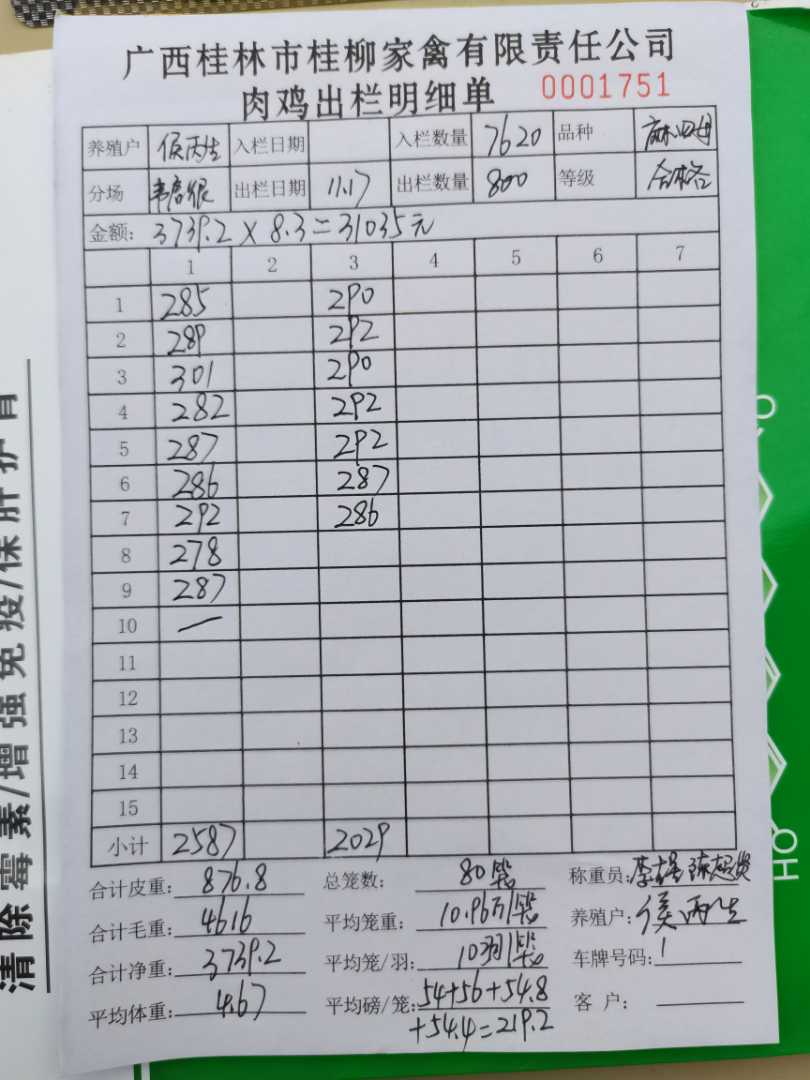 广西桂林市桂柳家禽有限责任公司
肉鸡出栏明细单 0001751
养殖户 侯丙生 入栏日期 入栏数量 7620 品种
分场 出栏日期 11.17 出栏数量 800 等级 合格
金额: 3739.2 × 8.3 = 31035元
1 2 3 4 5 6 7
1 285 290
2 289 292
3 301 290
4 282 292
5 287 292
6 286 287
7 292 286
8 278
9 287
10 一
11
12
13
14
15
小计 2587 2029
合计皮重: 876.8 总笼数: 80笼 称重员:
合计毛重: 4616 平均笼重: 10.96斤/笼 养殖户: 侯丙生
合计净重: 3739.2 平均笼/羽: 10羽/笼 车牌号码: 1
平均体重: 4.67 平均磅/笼: 54+56+54.8 客 户:
+54.4=219.2
清除霉素/增强免疫/保肝护肾
HO